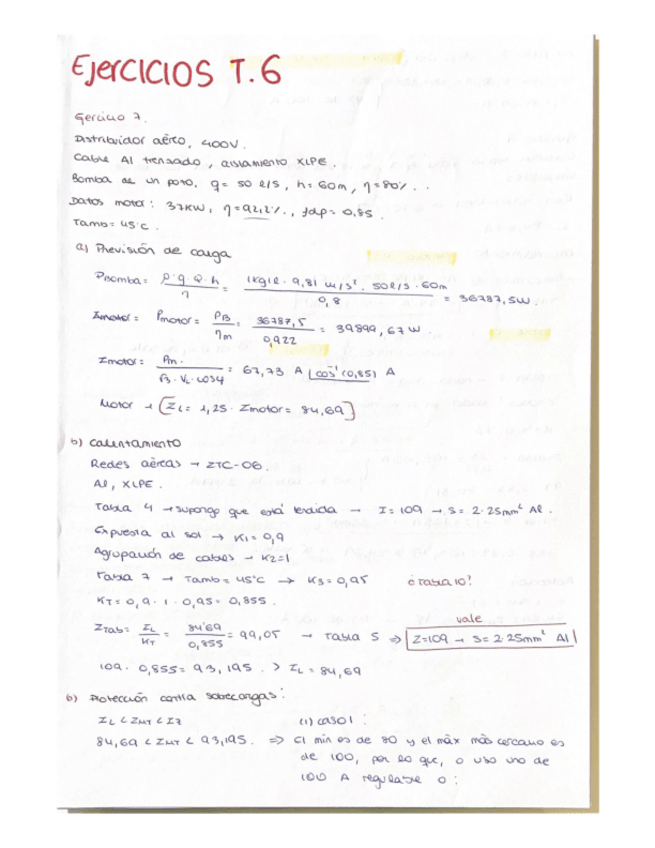 EJERCICIOS T.6
Ejercicio 7.
Distribuidor aéreo, 400V.
Cable Al trenzado, aislamiento XLPE.
Bomba de un pozo. q= 50 l/s, h= 60m, η=80%..
Datos motor: 37KW, η=92,2%., fdp= 0,85.
Tamb= 45°C.
a) Previsión de carga
PBomba= ρ·g·Q·h / η = 1kg/l · 9,81 m/s² · 50l/s · 60m / 0,8 = 36787,5W.
Imotor= Pmotor= PB / ηm = 36787,5 / 0,922 = 39899,67 W.
Imotor= Pm. / √3·VL·cosφ = 67,73 A |cos⁻¹(0,85) A
Motor → [IL= 1,25· Imotor= 84,69]
b) Calentamiento
Redes aéreas → ITC-06.
Al, XLPE.
Tabla 4 → supongo que está tendida → I= 109 → S= 2·25mm² Al.
Expuesta al sol → K1= 0,9
Agrupación de cables → K2=1
Tabla 7 → Tamb= 45°C → K3= 0,95 ¿Tabla 10?
KT= 0,9·1·0,95= 0,855.
Itab= IL / KT = 84'69 / 0,855 = 99,05 → Tabla 5 ⇒ I=109 → S= 2·25mm² Al
vale
109·0,855= 93,195. > IL= 84,69
b) Protección contra sobrecargas:
IL < IMT < IZ (1) caso 1:
84,69 < IMT < 93,195. ⇒ El min es de 80 y el máx más cercano es
de 100, por lo que, o uso uno de
100 A regulable o: